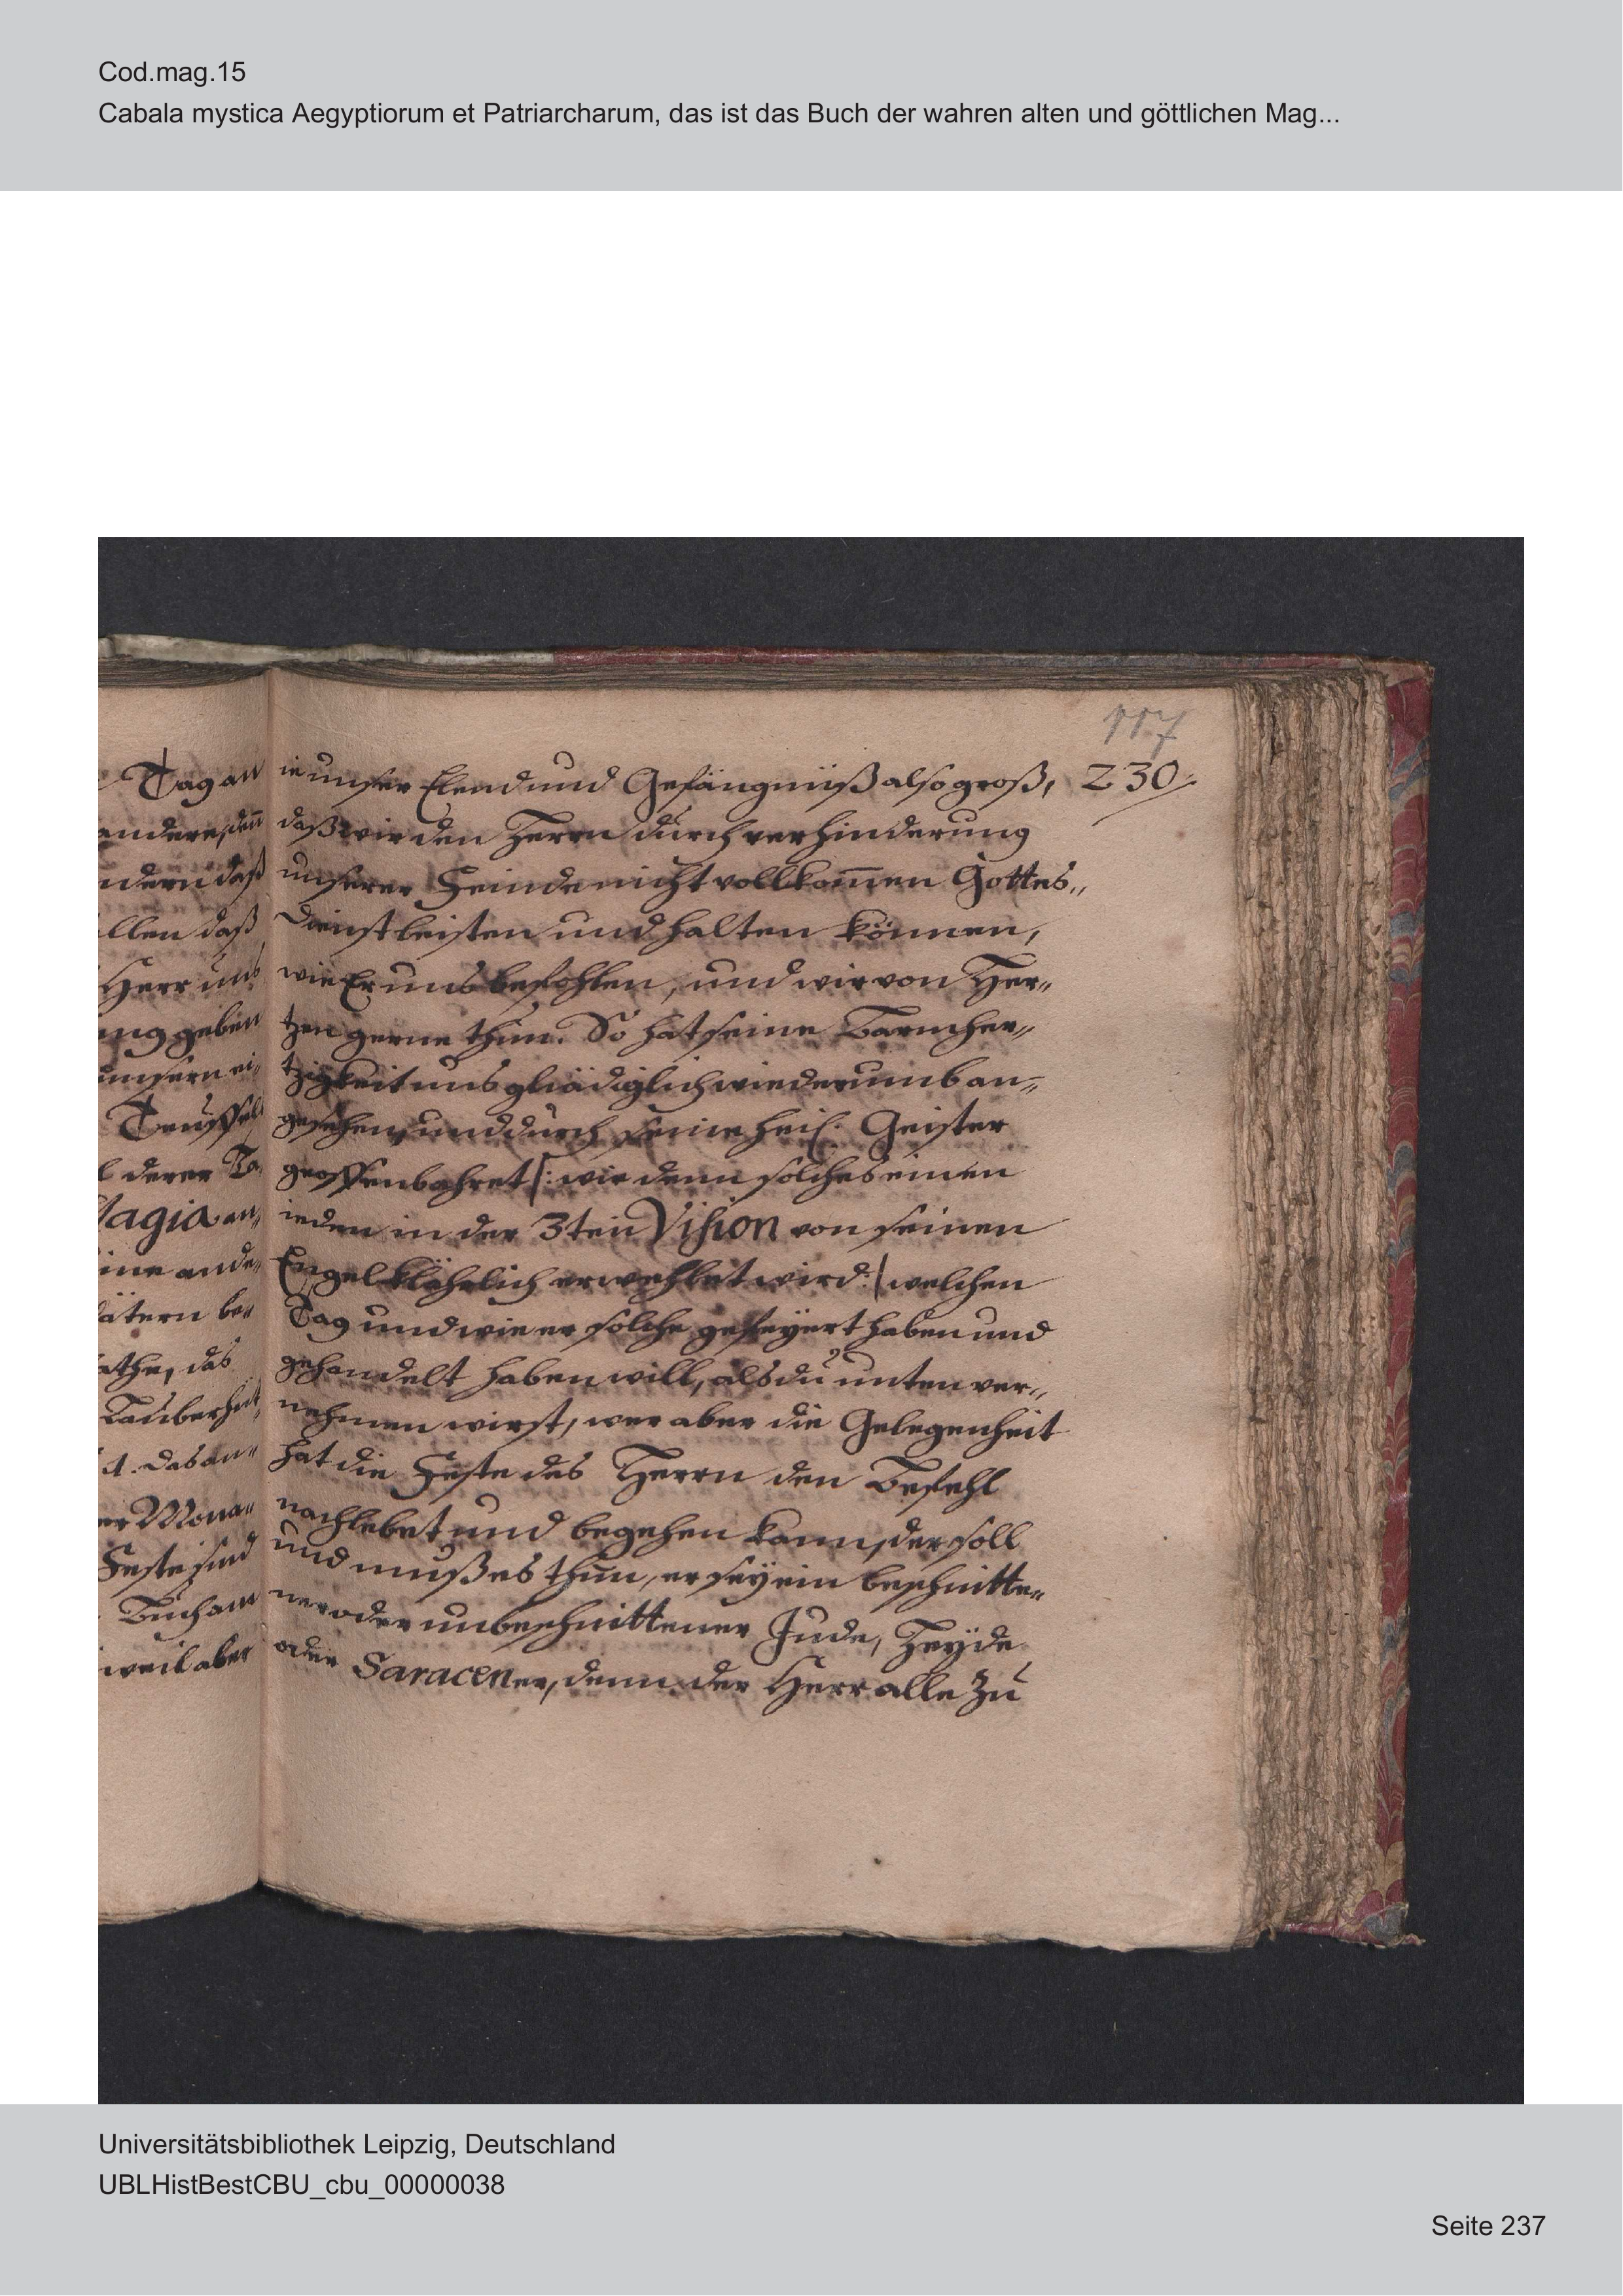 Cod.mag.15
Cabala mystica Aegyptiorum et Patriarcharum, das ist das Buch der wahren alten und göttlichen Mag...
117
230
Tag an
andere, den̄
ndern daß
llen daß
Herr uns
ung geben
unsern ei-
Teuffel
l derer
Magia an-
ine ande-
ätern be-
athe, das
Zauberheit,
das an-
er Mona-
Feste sind
Buch am
weil aber
ie unser Elend und Gefängnüß also groß,
daß wir den Herrn durch verhinderung
unserer Feinde nicht vollkom̄en Gottes-
dienst leisten und halten können,
wie Er uns befohlen, und wir von Her-
tzen gerne thun. So hat seine Barmher-
tzigkeit uns gnädiglich wiederumb an-
gesehen, und durch seine heil. Geister
geoffenbahret /: wie denn solches einen
ieden in der 3ten Vision von seinen
Engel klährlich erwehlet wird :/ welchen
Tag und wie er solche gefeyert haben und
gehandelt haben will, als du unten ver-
nehmen wirst, wer aber die Gelegenheit
hat die Feste des Herrn den Befehl
nachlebet und begehen kann, der soll
und muß es thun, er sey ein beschnitte-
ner oder unbeschnittener Jude, Heyde
oder Saracener, denn der Herr alle zu
Universitätsbibliothek Leipzig, Deutschland
UBLHistBestCBU_cbu_00000038
Seite 237